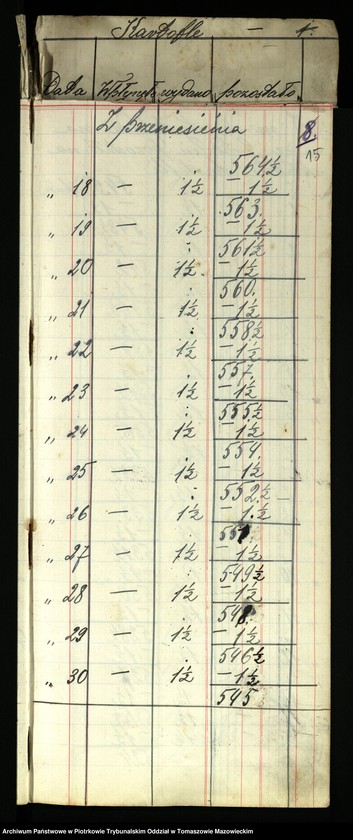 Kartofle — 4.
Data Wstąpiło wydano pozostało
Z przeniesienia 8
15
564½
„ 18 — 1½ — 1½
563.
„ 19 — 1½ — 1½
561½
„ 20 — 1½ — 1½
560.
„ 21 — 1½ — 1½
558½
„ 22 — 1½ — 1½
557.
„ 23 — 1½ — 1½
555½
„ 24 — 1½ — 1½
554.
„ 25 — 1½ — 1½
552½ —
„ 26 — 1½ — 1½
551
„ 27 — 1½ — 1½
549½
„ 28 — 1½ — 1½
548.
„ 29 — 1½ — 1½
546½
„ 30 — 1½ — 1½
545
Archiwum Państwowe w Piotrkowie Trybunalskim Oddział w Tomaszowie Mazowieckim